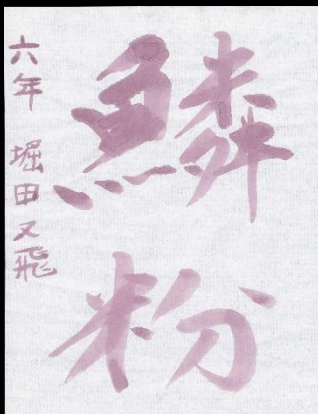 鱗粉
六年 堀田又飛